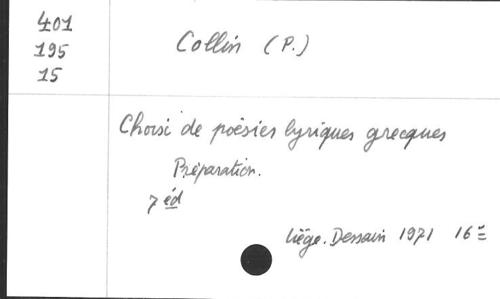 401
195
15
Collin (P.)
Choisi de poésies lyriques grecques
Préparation.
7 éd
Liége. Dessain 1971 16º